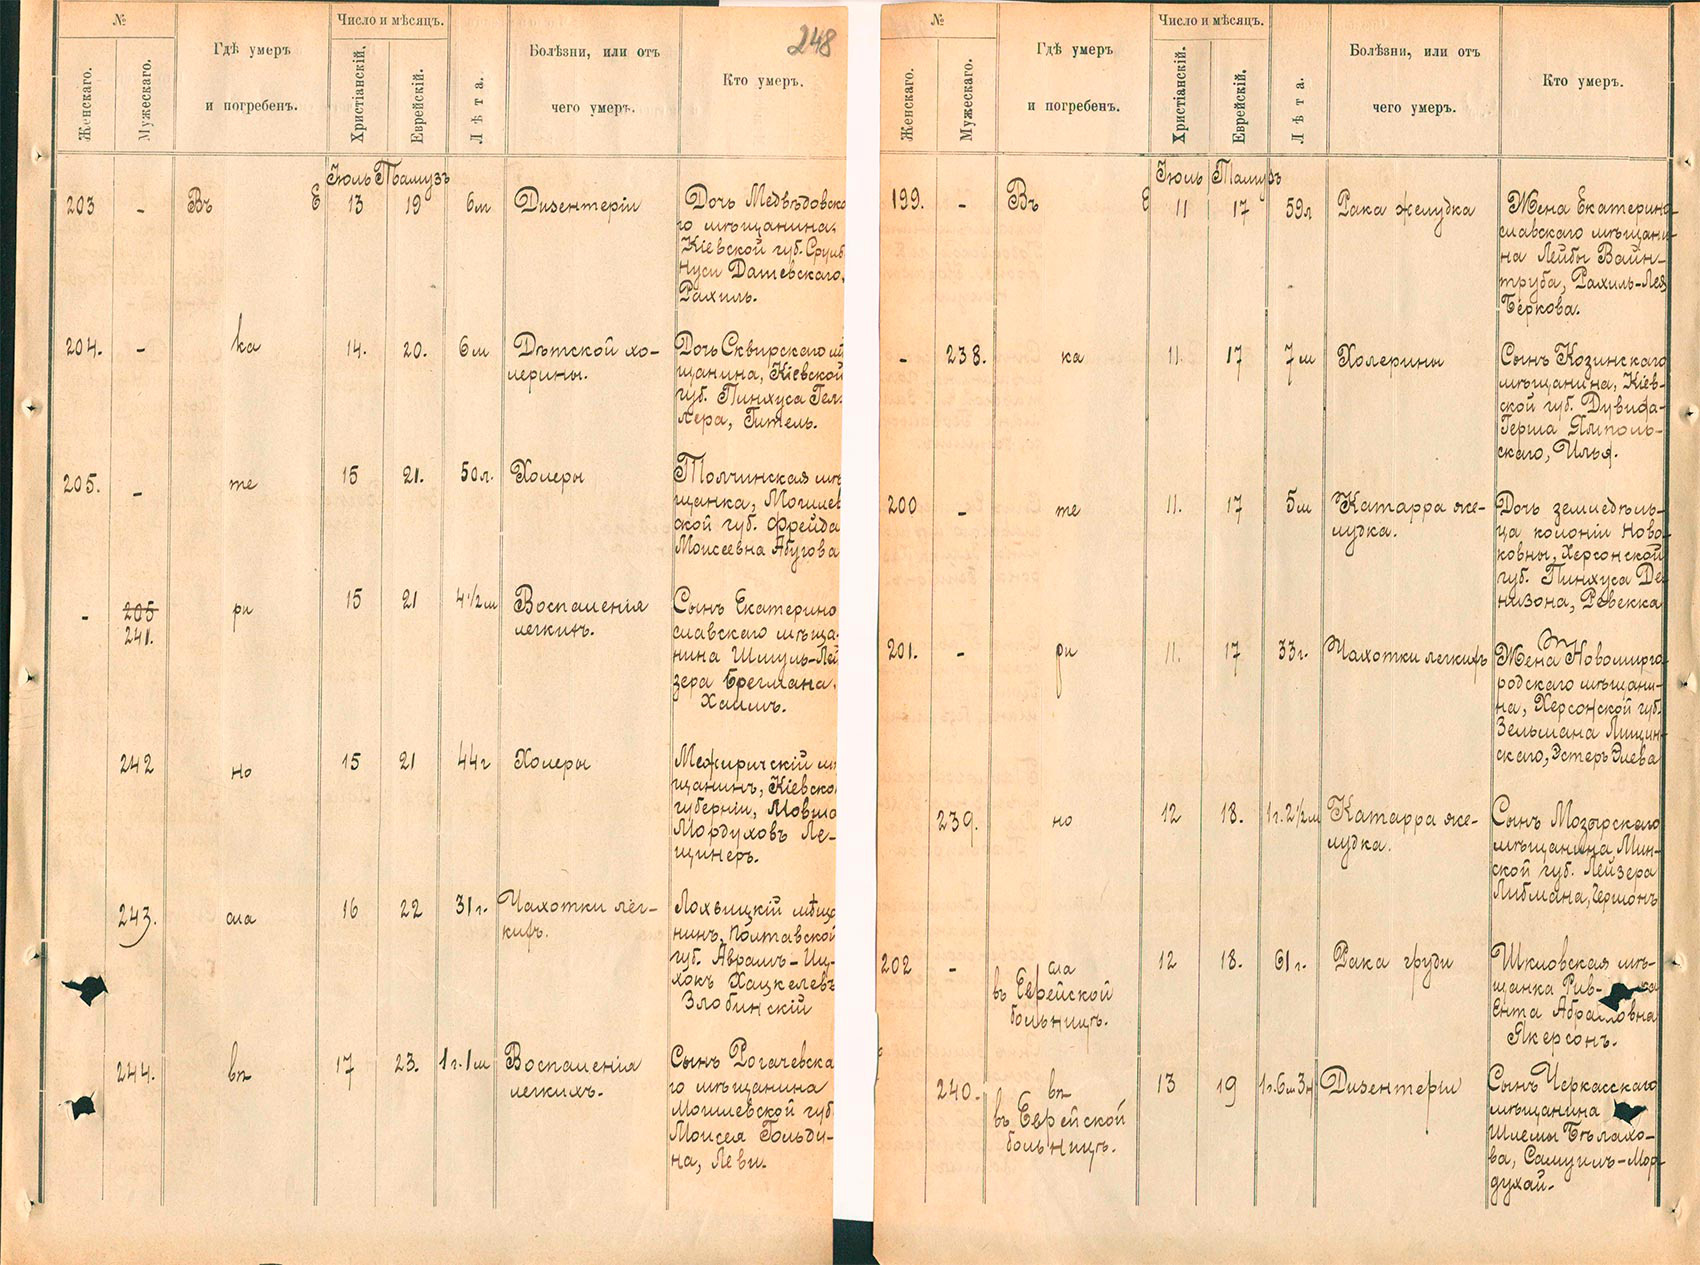 248
№
Число и мѣсяцъ.
Женскаго.
Мужескаго.
Гдѣ умеръ
и погребенъ.
Христіанскій.
Еврейскій.
Лѣта.
Болѣзни, или отъ
чего умеръ.
Кто умеръ.
Іюль Тамузъ
203 - Въ Е 13 19 6м Дизентеріи Дочь Медвѣдовска
го мѣщанина,
Кіевской губ. Сруль
Нуси Дашевскаго,
Рахиль.
204. - ка 14. 20. 6м Дѣтской хо- Дочь Сквирскаго мѣ
лерины. щанина, Кіевской
губ. Пинхуса Гел-
лера, Гитель.
205. - те 15 21. 50л. Холеры Толчинская мѣ
щанка, Могилев
ской губ. Фрейда
Моисеевна Абугова
- 205 ри 15 21 4½м Воспаленія Сынъ Екатерино
241. легкихъ. славскаго мѣща-
нина Шмуль-Лей
зера Брегмана,
Хаимъ.
242 но 15 21 44г Холеры Межиричскій мѣ
щанинъ, Кіевско
губерніи, Мовша
Мордуховъ Ле-
щинеръ.
243. сла 16 22 31г. Чахотки лег- Лохвицкій мѣща
кихъ. нинъ, Полтавской
губ. Аврамъ-Иц-
хокъ Хацкелевъ
Злобинскій
244. въ 17 23. 1г.1м Воспаленія Сынъ Рогачевска
легкихъ. го мѣщанина
Могилевской губ.
Моисея Гольди-
на, Леви.
№
Число и мѣсяцъ.
Женскаго.
Мужескаго.
Гдѣ умеръ
и погребенъ.
Христіанскій.
Еврейскій.
Лѣта.
Болѣзни, или отъ
чего умеръ.
Кто умеръ.
Іюль Тамузъ
199. - Въ Е 11 17 59л Рака желудка Жена Екатерино-
славскаго мѣщани-
на Лейбы Вайн-
труба, Рахиль-Лея
Беркова.
- 238. ка 11. 17 7м Холерины Сынъ Козинскаго
мѣщанина, Кіев-
ской губ. Дувида-
Герша Ямполь-
скаго, Илья.
200 - те 11. 17 5м Катарра же- Дочь земледѣль-
лудка. ца колоніи Ново-
ковны, Херсонской
губ. Пинхуса Де-
низона, Ревекка
201. - ри 11. 17 33г. Чахотки легкихъ Жена Новомирго-
родскаго мѣщани-
на, Херсонской губ.
Зельмана Лищин-
скаго, Эстеръ Элева
239. но 12 18. 1г.2½м Катарра же- Сынъ Мозырскаго
лудка. мѣщанина Мин-
ской губ. Лейзера
Либмана, Гершонъ
202 - сла 12 18. 61г. Рака груди Шкловская мѣ-
въ Еврейской щанка Рив- ка
больницѣ. Ента Абрамовна
Якерсонъ.
240. въ 13 19 1г.6м.3н Дизентеріи Сынъ Черкасскаго
въ Еврейской мѣщанина
больницѣ. Шлемы Бѣлахо-
ва, Самуилъ-Мор-
духай.